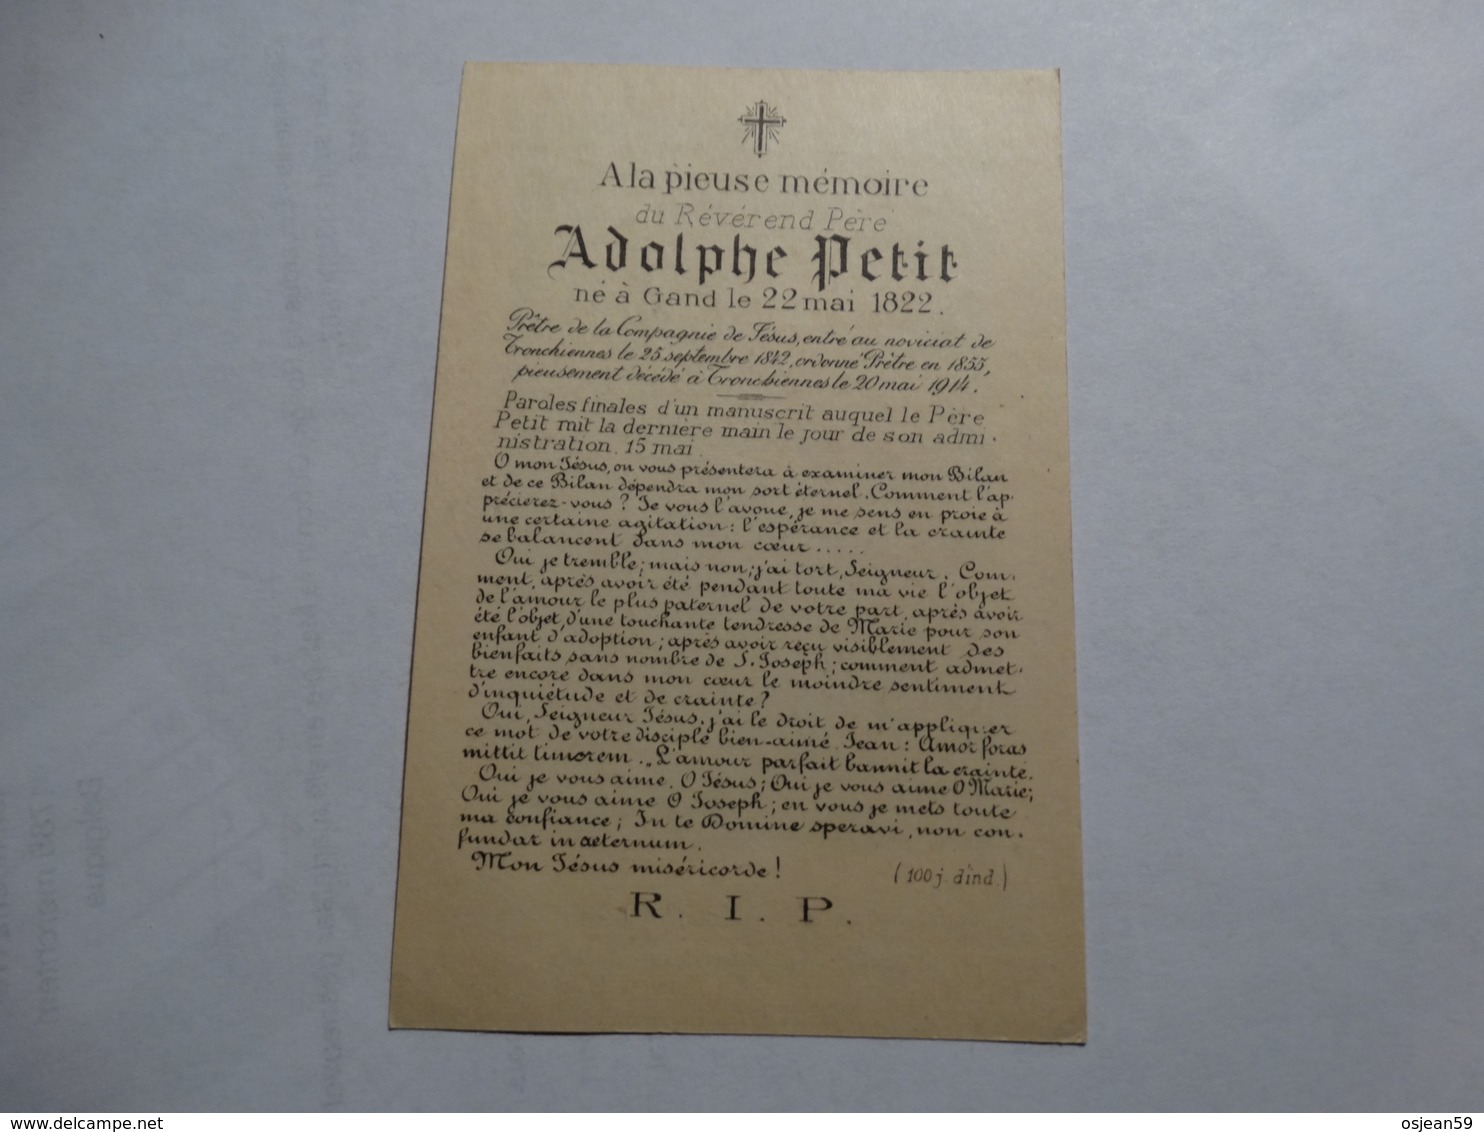 A la pieuse mémoire
du Révérend Père
Adolphe Petit
né à Gand le 22 mai 1822.
Prêtre de la Compagnie de Jésus, entré au noviciat de
Tronchiennes le 25 septembre 1842, ordonné Prêtre en 1855,
pieusement décédé à Tronchiennes le 20 mai 1914.
Paroles finales d'un manuscrit auquel le Père
Petit mit la dernière main le jour de son admi-
nistration. 15 mai
O mon Jésus, on vous présentera à examiner mon Bilan
et de ce Bilan dépendra mon sort éternel. Comment l'ap-
précierez-vous? Je vous l'avoue, je me sens en proie à
une certaine agitation: l'espérance et la crainte
se balancent dans mon cœur.....
Oui je tremble; mais non; j'ai tort, Seigneur. Com-
ment, après avoir été pendant toute ma vie l'objet
de l'amour le plus paternel de votre part, après avoir
été l'objet, d'une touchante tendresse de Marie pour son
enfant d'adoption; après avoir reçu visiblement des
bienfaits sans nombre de S. Joseph; comment admet-
tre encore dans mon cœur le moindre sentiment
d'inquiétude et de crainte?
Oui, Seigneur Jésus, j'ai le droit de m'appliquer
ce mot de votre disciple bien-aimé Jean: Amor foras
mittit timorem. „L'amour parfait bannit la crainte.
Oui je vous aime, O Jésus; Oui je vous aime O Marie;
Oui je vous aime O Joseph; en vous je mets toute
ma confiance; In te Domine speravi, non con-
fundar in aeternum.
Mon Jésus miséricorde! (100 j. d'ind.)
R. I. P.
delcampe.net
osjean59